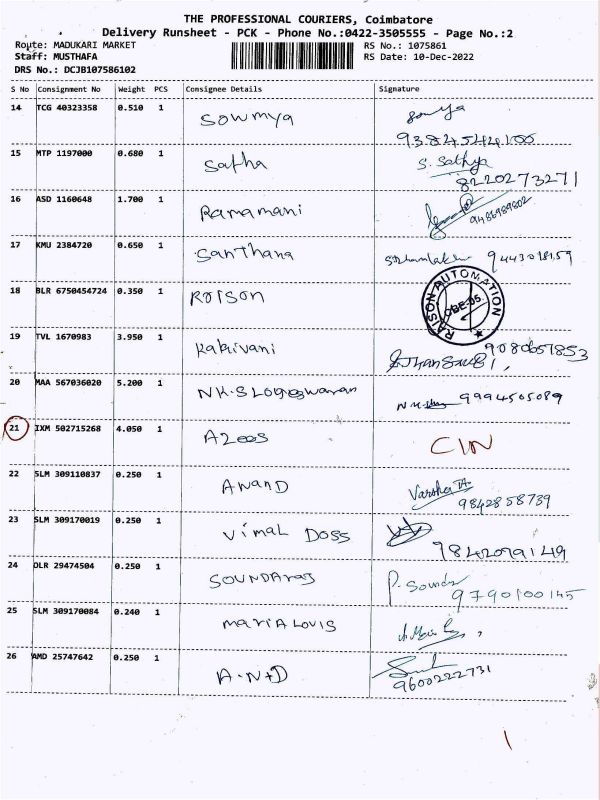 THE PROFESSIONAL COURIERS, Coimbatore
Delivery Runsheet - PCK - Phone No.:0422-3505555 - Page No.:2
Route: MADUKARI MARKET RS No.: 1075861
Staff: MUSTHAFA RS Date: 10-Dec-2022
DRS No.: DCJB107586102
S No Consignment No Weight PCS Consignee Details Signature
14 TCG 40323358 0.510 1 Sowmya Sowmya
9384544100
15 MTP 1197000 0.680 1 Satha S. Sathya
8220273271
16 ASD 1160648 1.700 1 Ramamani
9486989802
17 KMU 2384720 0.650 1 Santhana
18 BLR 6750454724 0.350 1 ROISON
RAISON AUTOMATION
CBE-05.
19 TVL 1670983 3.950 1 Kalaivani 9080651853
20 MAA 567036020 5.200 1 N.K.S Logeswaran 9994505089
21 IXM 502715268 4.050 1 AZees CIN
22 SLM 309110837 0.250 1 ANAND Varsha
9842858739
23 SLM 309170019 0.250 1 Vimal Doss
9842099149
24 OLR 29474504 0.250 1 SOUNDARAJ P. Soundar
9790100145
25 SLM 309170084 0.240 1 MARIA LOUIS
26 AMD 25747642 0.250 1 A.N.D
9600222731